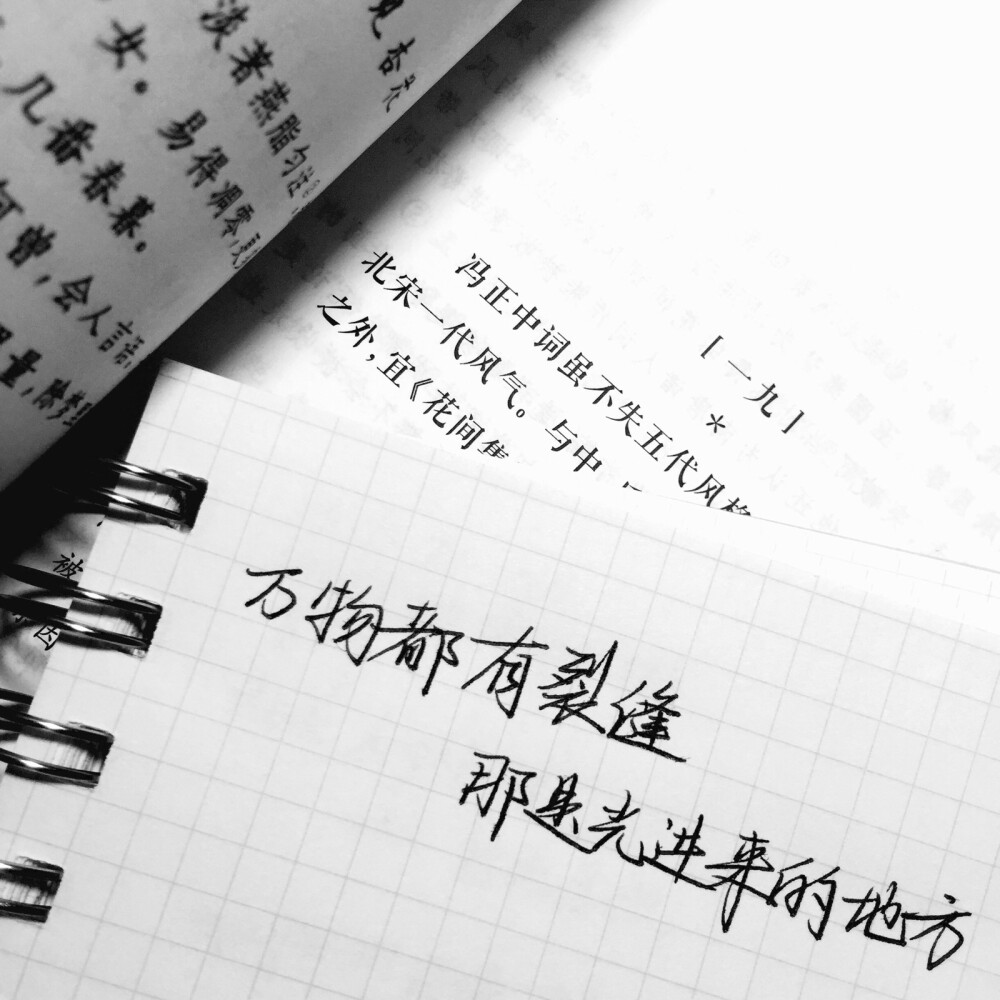 见杏花
淡著燕脂匀注
女。易得凋零
几番春暮。
何曾,会人言语
思量,除
[一九]
*
冯正中词虽不失五代风格
北宋一代风气。与中
之外,宜《花间集
被
因
万物都有裂缝
那是光进来的地方